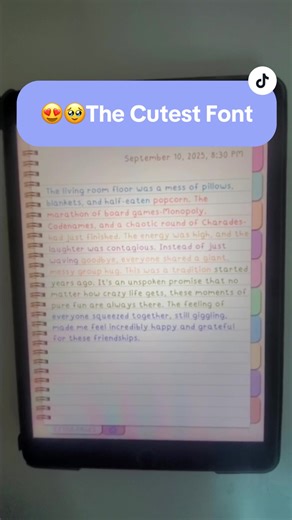 😍🥹The Cutest Font
September 10, 2025, 8:30 PM
The living room floor was a mess of pillows,
blankets, and half-eaten popcorn. The
marathon of board games-Monopoly,
Codenames, and a chaotic round of Charades-
had just finished. The energy was high, and the
laughter was contagious. Instead of just
waving goodbye, everyone shared a giant,
messy group hug. This was a tradition started
years ago. It's an unspoken promise that no
matter how crazy life gets, these moments of
pure fun are always there. The feeling of
everyone squeezed together, still giggling,
made me feel incredibly happy and grateful
for these friendships.